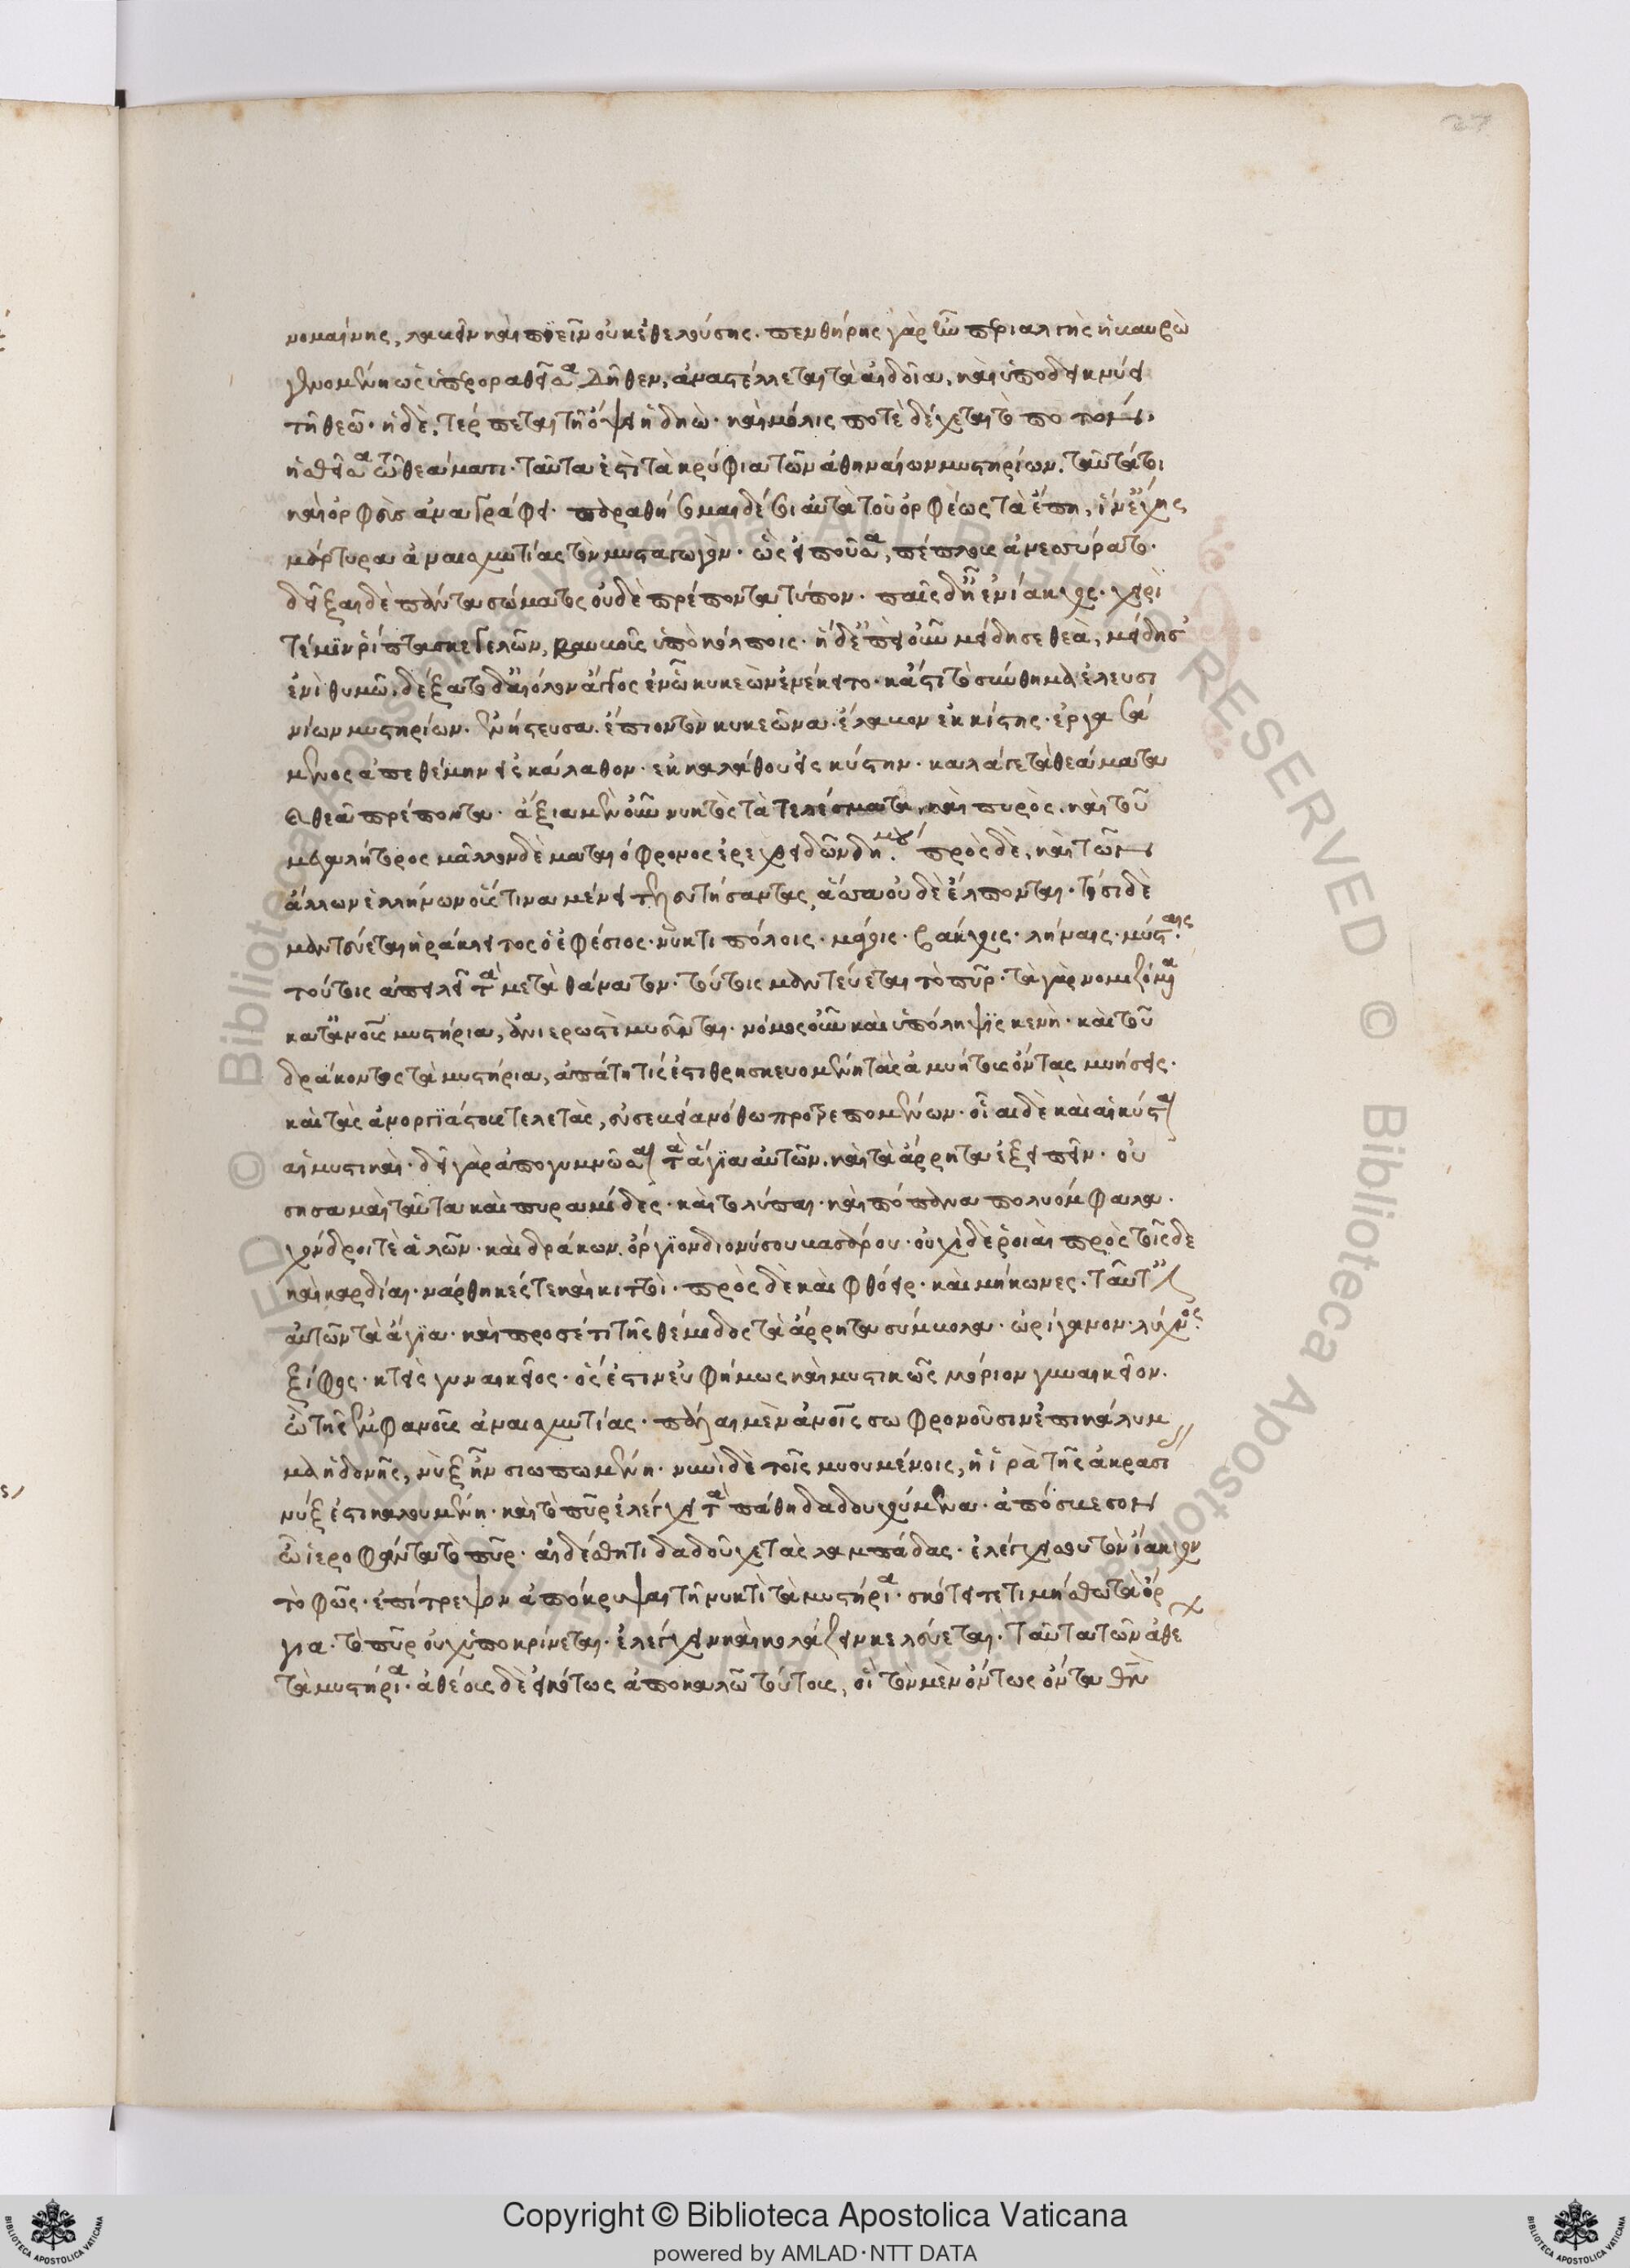 νομαίνης, λαβεῖν καὶ πιεῖν οὐκ ἐθελούσης· πενθήρης γὰρ ἦν περιαλγὴς ἡ βαυβὼ
γενομένη ὡς ὑπεροραθεῖσα δῆθεν, ἀναστέλλεται τὰ αἰδοῖα, καὶ ὑποδεικνύει
τῇ θεῷ· ἡ δὲ, τέρπεται τῇ ὄψει ἡ δηώ· καὶ μόλις ποτὲ δέχεται τὸ ποτὸν·
ἡσθεῖσα τῷ θεάματι· ταῦτα ἐστὶ τὰ κρύφια τῶν ἀθηναίων μυστηρίων. ταῦτά τοι
καὶ ὀρφεὺς ἀναγράφει· παραθήσομαι δέ σοι αὐτὰ τοῦ ὀρφέως τὰ ἔπη, ἵν' ἔχης
μάρτυρα ἀναισχυντίας τὸν μυσταγωγὸν· ὣς εἰποῦσα, πέπλους ἀνεσύρατο·
δεῖξαι δὲ πάντα σώματος οὐδὲ πρέποντα τύπον· παῖς δ' ἦεν ἴακχος· χειρί
τέ μιν ῥίπτασκε γελῶν, βαυβοῦς ὑπὸ κόλποις· ἡ δ' ἐπεὶ οὖν μείδησε θεὰ, μείδησ'
ἐνὶ θυμῷ, δέξατο δ' αἰόλον ἄγγος ἐν ᾧ κυκεὼν ἐνέκειτο· κἄστι τὸ σύνθημα ἐλευσι
νίων μυστηρίων· ἐνήστευσα. ἔπιον τὸν κυκεῶνα· ἔλαβον ἐκ κίστης· ἐργασά
μενος ἀπεθέμην εἰς κάλαθον· ἐκ καλάθου εἰς κύστην· καλά γε τὰ θεάματα
θεᾷ πρέποντα· ἄξια μὲν οὖν νυκτὸς τὰ τελέσματα, καὶ πυρὸς. καὶ τοῦ
μεγαλήτορος μᾶλλον δὲ ματαιόφρονος ἐρεχθειδῶν δήμου· πρὸς δὲ, καὶ τῶν
ἄλλων ἑλλήνων οὕς τινας μένει τελευτήσαντας, ἅσσα οὐδὲ ἔλπονται· τίσι δὲ
μαντεύεται ἡράκλειτος ὁ ἐφέσιος· νυκτιπόλοις· μάγοις· βάκχοις· λήναις· μύσταις
τούτοις ἀπειλεῖ τὰ μετὰ θάνατον· τούτοις μαντεύεται τὸ πῦρ· τὰ γὰρ νομιζόμενα
κατ' ἀνθρώπους μυστήρια, ἀνιερωστὶ μυοῦνται· νόμος οὖν καὶ ὑπόληψις κενὴ· καὶ τοῦ
δράκοντος τὰ μυστήρια, ἀπάτη τίς ἐστι θρησκευομένη τὰς ἀμυήτους ὄντας μυήσεις·
καὶ τὰς ἀνοργιάστους τελετὰς, εὐσεβείᾳ νόθῳ προτρεπομένων· οἷαι δὲ καὶ αἱ κύσται
αἱ μυστικαὶ· δεῖ γὰρ ἀπογυμνῶσαι τὰ ἅγια αὐτῶν. καὶ τὰ ἄρρητα ἐξειπεῖν· οὐ
σησαμαὶ ταῦτα καὶ πυραμίδες· καὶ τολύπαι· καὶ πόπανα πολυόμφαλα·
χόνδροι τὲ ἁλῶν· καὶ δράκων. ὄργιον διονύσου βασσάρου· οὐχὶ δὲ ῥοιαὶ πρὸς τοῖς δε
καὶ καρδίαι· νάρθηκές τε καὶ κιττοὶ· πρὸς δὲ καὶ φθόεις· καὶ μήκωνες· ταῦτ' ἔστιν
αὐτῶν τὰ ἅγια· καὶ προσέτι τῆς θέμιδος τὰ ἄρρητα σύμβολα· ὠρίγανον· λύχνος·
ξίφος· κτεὶς γυναικεῖος· ὅς ἐστιν εὐφήμως καὶ μυστικῶς μόριον γυναικεῖον.
ὢ τῆς ἐμφανοῦς ἀναισχυντίας· πάλαι μὲν ἀνθρώποις σωφρονοῦσιν ἐπικάλυμ
μα ἡδονῆς, νὺξ ἦν σιωπωμένη· νυνὶ δὲ τοῖς μυουμένοις, ἡ ἱερὰ τῆς ἀκρασίας
νύξ ἐστι καλουμένη· καὶ τὸ πῦρ ἐλέγχει τὰ πάθη δαδουχούμενα· ἀπόσβεσον
ὦ ἱεροφάντα τὸ πῦρ· αἰδέσθητι δαδοῦχε τὰς λαμπάδας· ἐλέγχει σου τὸν ἴακχον
τὸ φῶς· ἐπίτρεψον ἀπόκρυψαι τῇ νυκτὶ τὰ μυστήρια· σκότει τετιμήσθω τὰ ὄρ
για. τὸ πῦρ οὐχ ὑποκρίνεται· ἐλέγχειν καὶ κολάζειν κελεύεται. ταῦτα τῶν ἀθέων
τὰ μυστήρια· ἀθέους δὲ εἰκότως ἀποκαλῶ τούτους, οἳ τὸν μὲν ὄντως ὄντα θεὸν